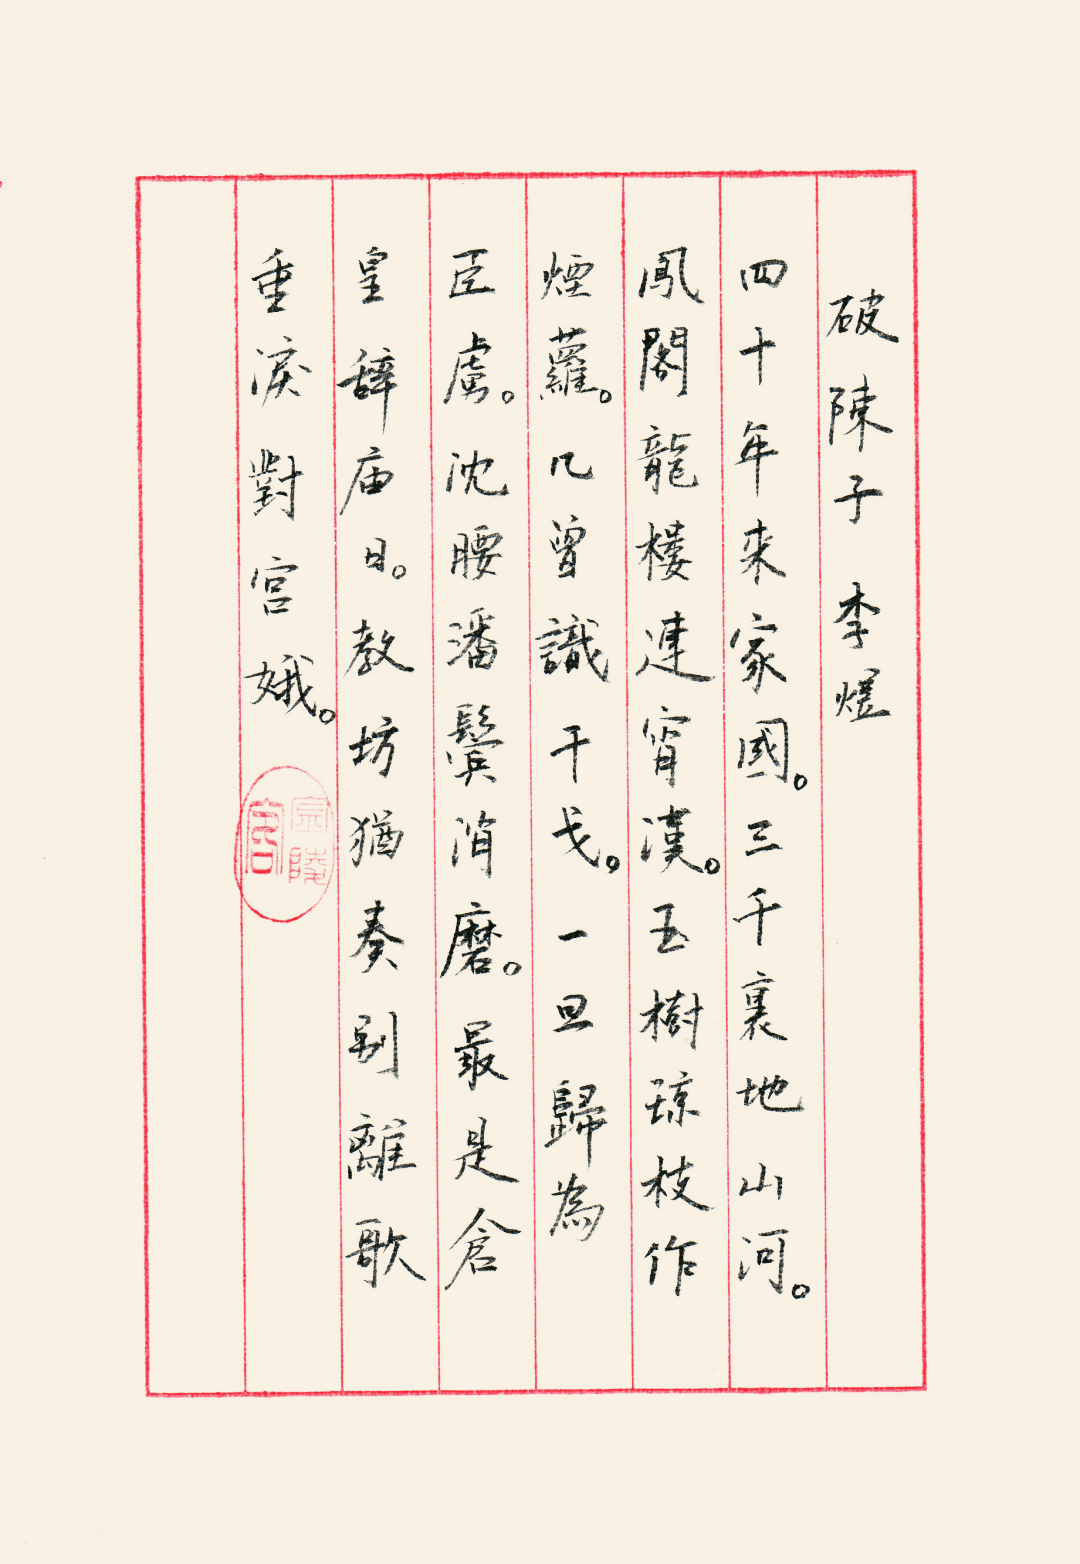 破陳子 李煜
四十年来家國。三千裏地山河。
鳳閣龍樓連宵漢。玉樹琼枝作
煙蘿。几曾識干戈。一旦歸為
臣虜。沈腰潘鬓消磨。最是倉
皇辞庙日。教坊猶奏别離歌
垂淚對宮娥。
陵客